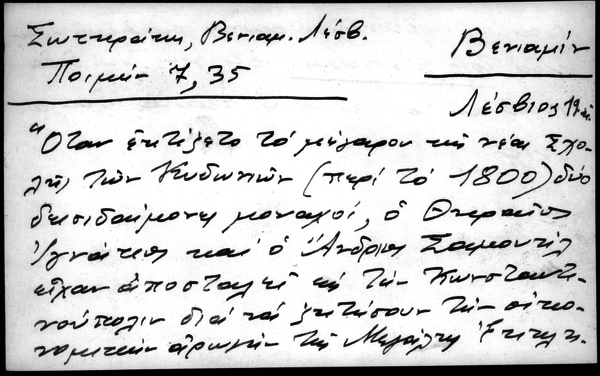 Σωτηράκη, Βενιαμ. Λέσβ.
Ποιμήν 7, 35
Βενιαμίν
Λέσβιος
"Όταν ἐκτίζετο τό μέγαρον τῆς νέας Σχο-
λῆς τῶν Κυδωνιῶν (περί τό 1800) δύο
δεισιδαίμονες μοναχοί, ὁ Θηραῖος
Ἰγνάτιος καί ὁ Ἄνδριος
εἶχαν ἀποσταλεῖ εἰς τήν Κωνσταντι-
νούπολιν διά νά ζητήσουν τήν οἰκο-
νομικήν ἀρωγήν τῆς Μεγάλης Ἐκκλη-